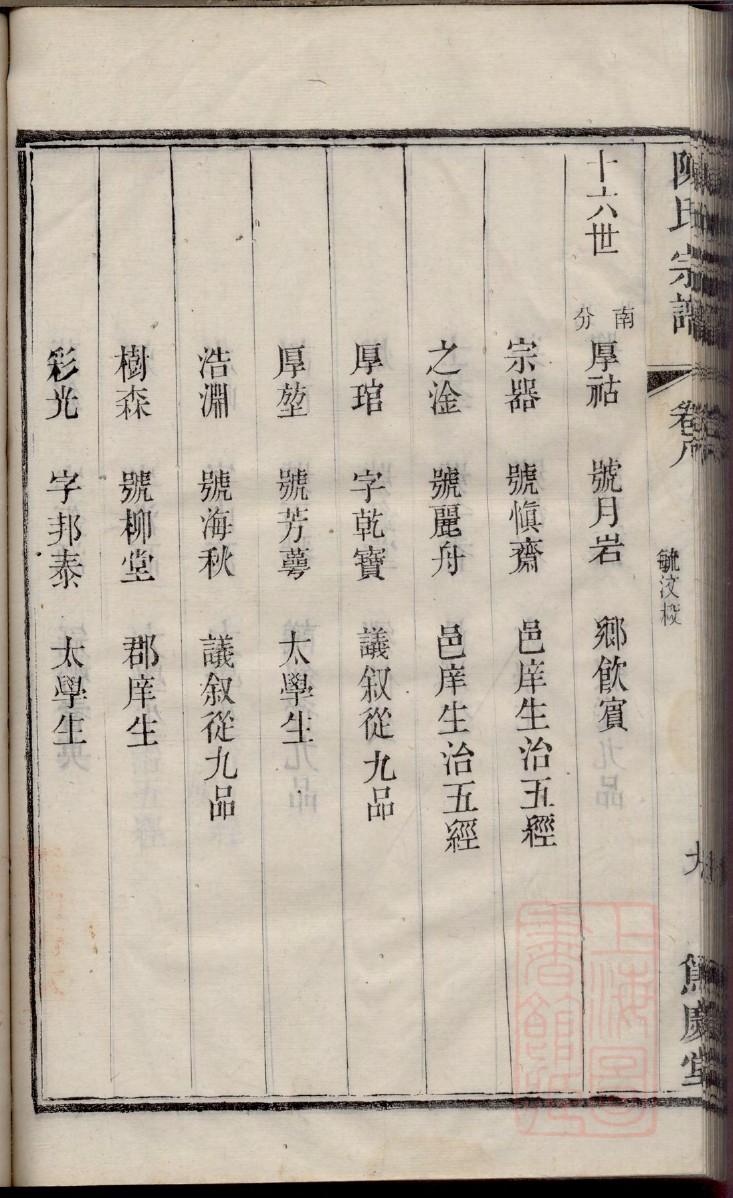 陳氏宗譜
卷
毓汶校
慶堂
十六世 南分 厚祜 號月岩 鄉飲賓
宗器 號慎齋 邑庠生治五經
之淦 號麗舟 邑庠生治五經
厚琯 字乾寶 議叙從九品
厚堃 號芳蕚 太學生
浩淵 號海秋 議叙從九品
樹森 號柳堂 郡庠生
彩光 字邦泰 太學生
上海圖書館藏